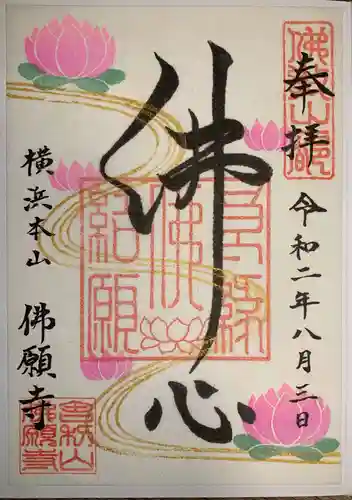 奉拝
令和二年八月三日
佛心
横浜本山
佛願寺